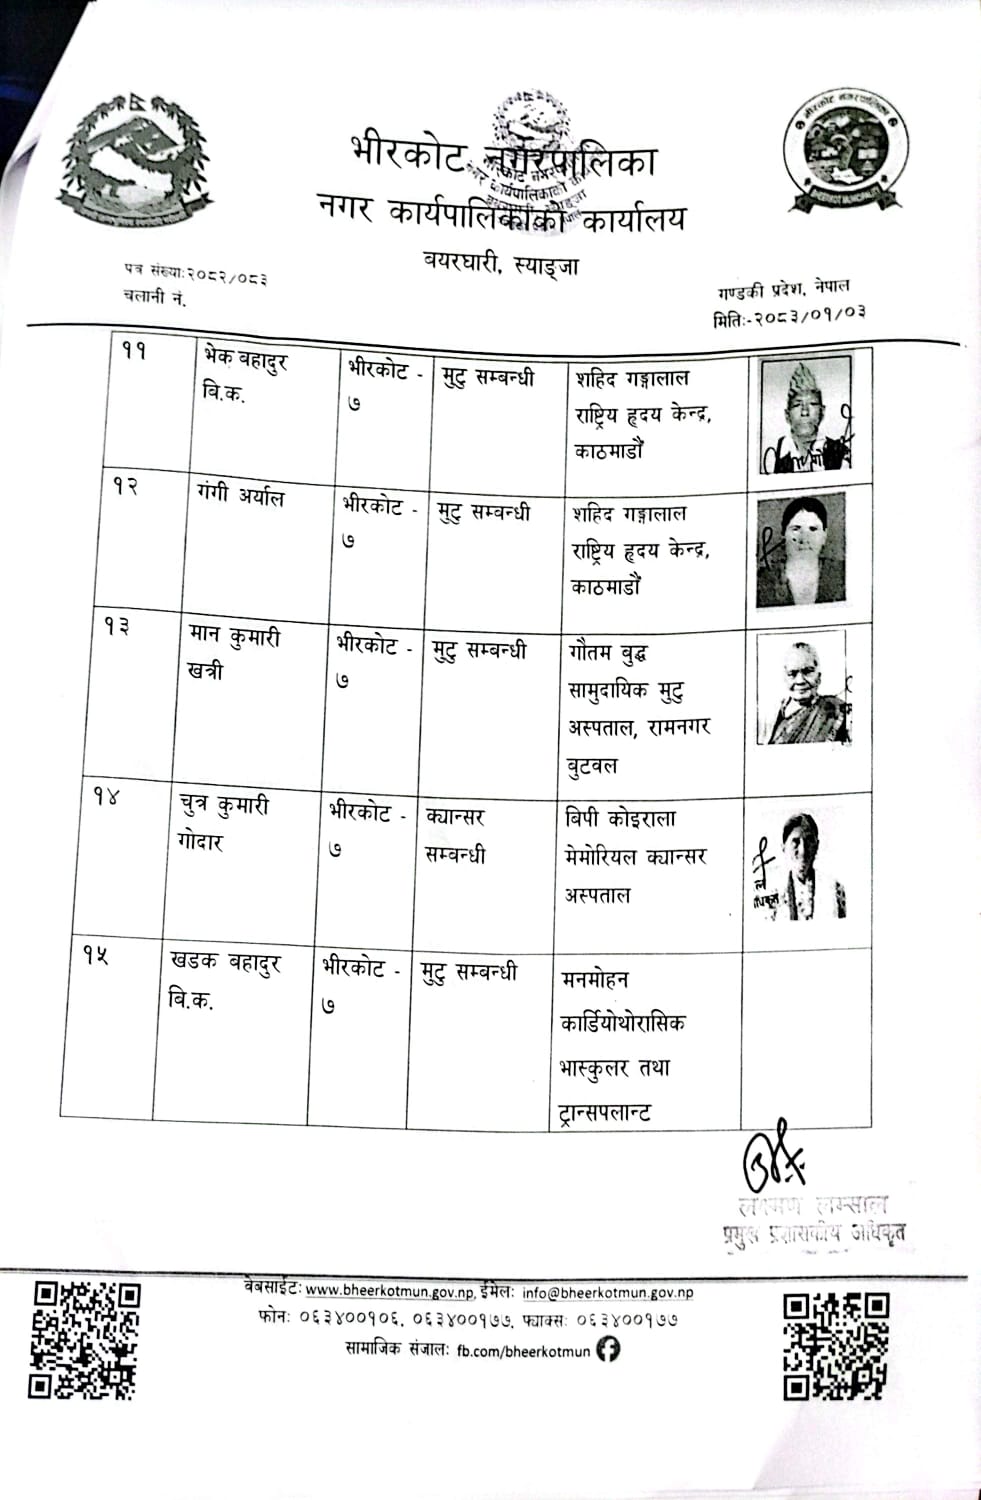 भीरकोट नगरपालिका
नगर कार्यपालिकाको कार्यालय
बयरघारी, स्याङ्जा
पत्र संख्या:२०८२/०८३
चलानी नं.
गण्डकी प्रदेश, नेपाल
मिति:-२०८३/०१/०३
११ भेक बहादुर वि.क. भीरकोट - ७ मुटु सम्बन्धी शहिद गङ्गालाल राष्ट्रिय हृदय केन्द्र, काठमाडौं
१२ गंगी अर्याल भीरकोट - ७ मुटु सम्बन्धी शहिद गङ्गालाल राष्ट्रिय हृदय केन्द्र, काठमाडौं
१३ मान कुमारी खत्री भीरकोट - ७ मुटु सम्बन्धी गौतम बुद्ध सामुदायिक मुटु अस्पताल, रामनगर बुटवल
१४ चुत्र कुमारी गोदार भीरकोट - ७ क्यान्सर सम्बन्धी बिपी कोइराला मेमोरियल क्यान्सर अस्पताल
१५ खडक बहादुर वि.क. भीरकोट - ७ मुटु सम्बन्धी मनमोहन कार्डियोथोरासिक भास्कुलर तथा ट्रान्सपलान्ट
लक्ष्मण लम्साल
प्रमुख प्रशासकीय अधिकृत
वेबसाईट: www.bheerkotmun.gov.np, ईमेल: info@bheerkotmun.gov.np
फोन: ०६३४००१०६, ०६३४००१७७, फ्याक्स: ०६३४००१७७
सामाजिक संजाल: fb.com/bheerkotmun